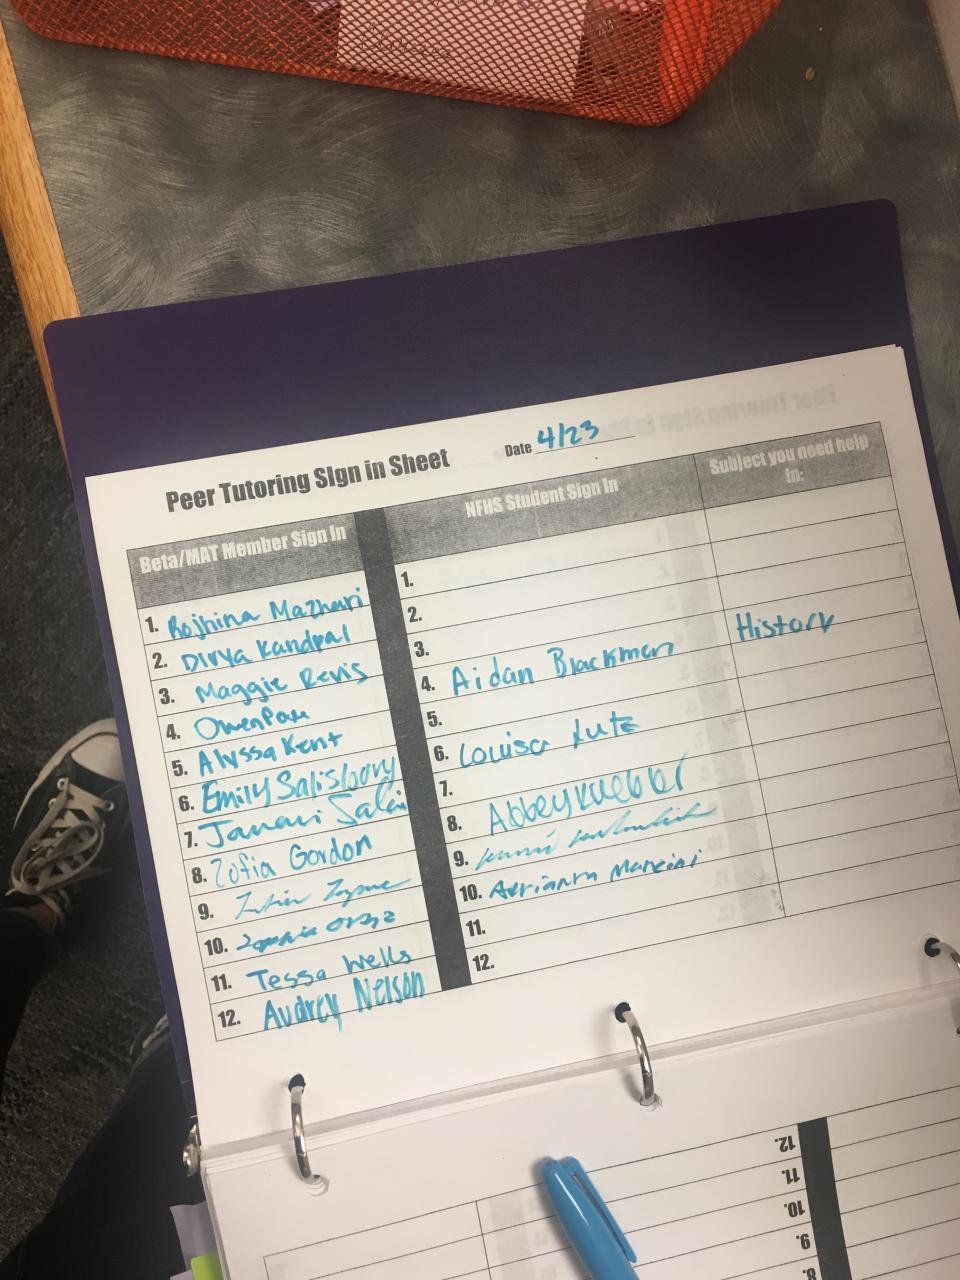 Peer Tutoring Sign in Sheet
Date 4/23
Beta/MAT Member Sign In
NFHS Student Sign In
Subject you need help in:
1. Rojhina Mazhari
2. Divya Kandpal
3. Maggie Revis
4. Owen
5. Alyssa Kent
6. Emily Salisbury
7. Janani
8. Zofia Gordon
9.
10.
11. Tessa Wells
12. Audrey Nelson
1.
2.
3.
4. Aidan Blackmon History
5.
6. Louisa Lutz
7.
8. Abbey
9.
10. Adrianna Mancini
11.
12.
12.
11.
10.
9.
8.